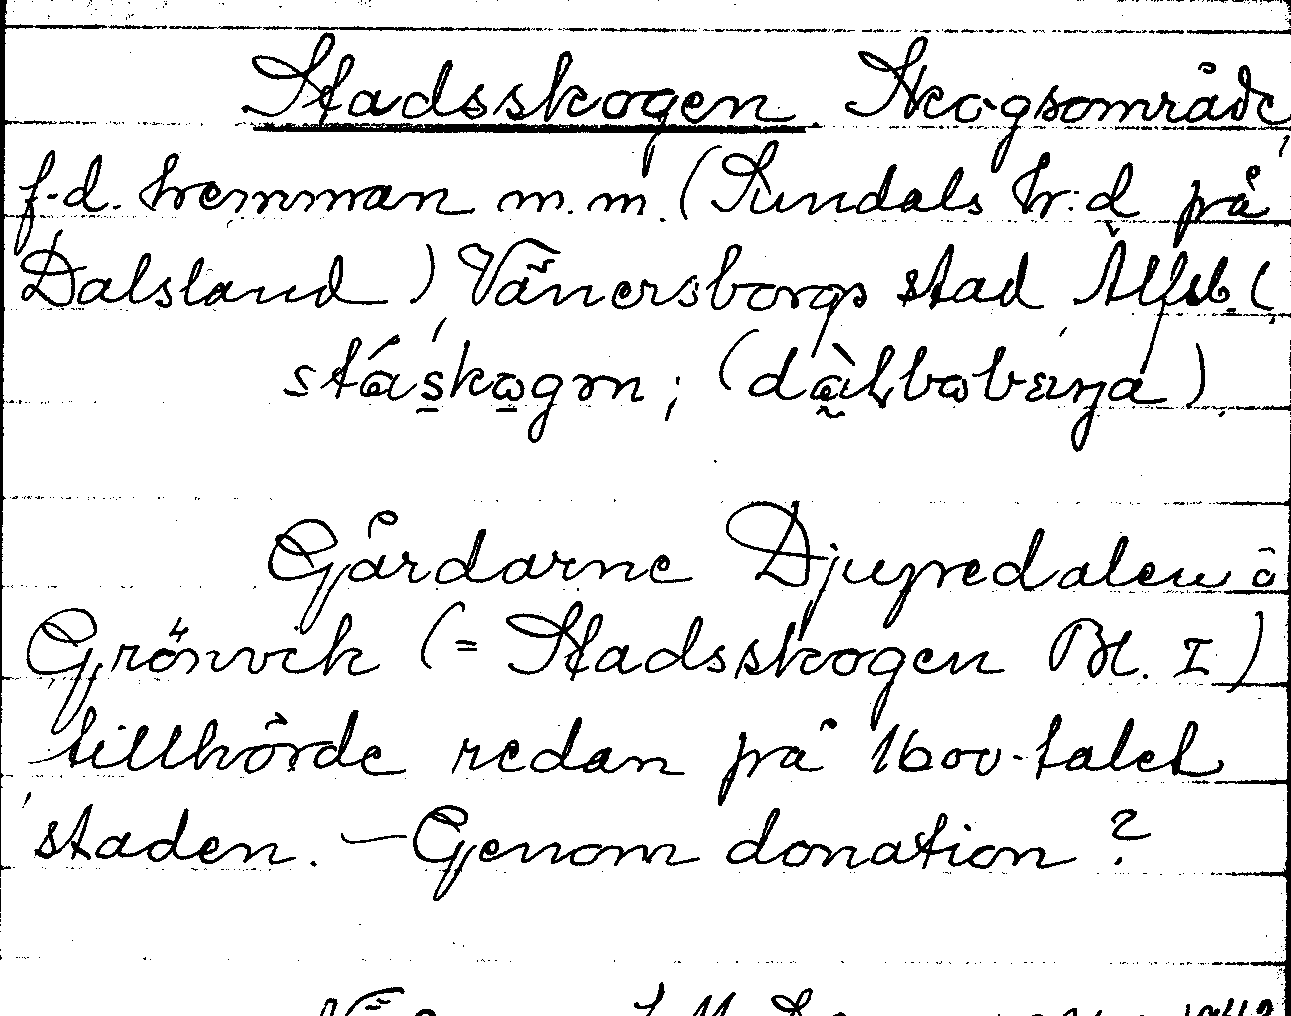 Stadsskogen. Skogsområde,
f.d. hemman m.m. (Sundals hr:d på
Dalsland) Vänersborgs stad Älfsb. l.
stáskogən; (dàlboberŋa).
Gårdarne Djupedalen o
Grönvik (= Stadsskogen Bl. I)
tillhörde redan på 1600-talet
staden. — Genom donation?